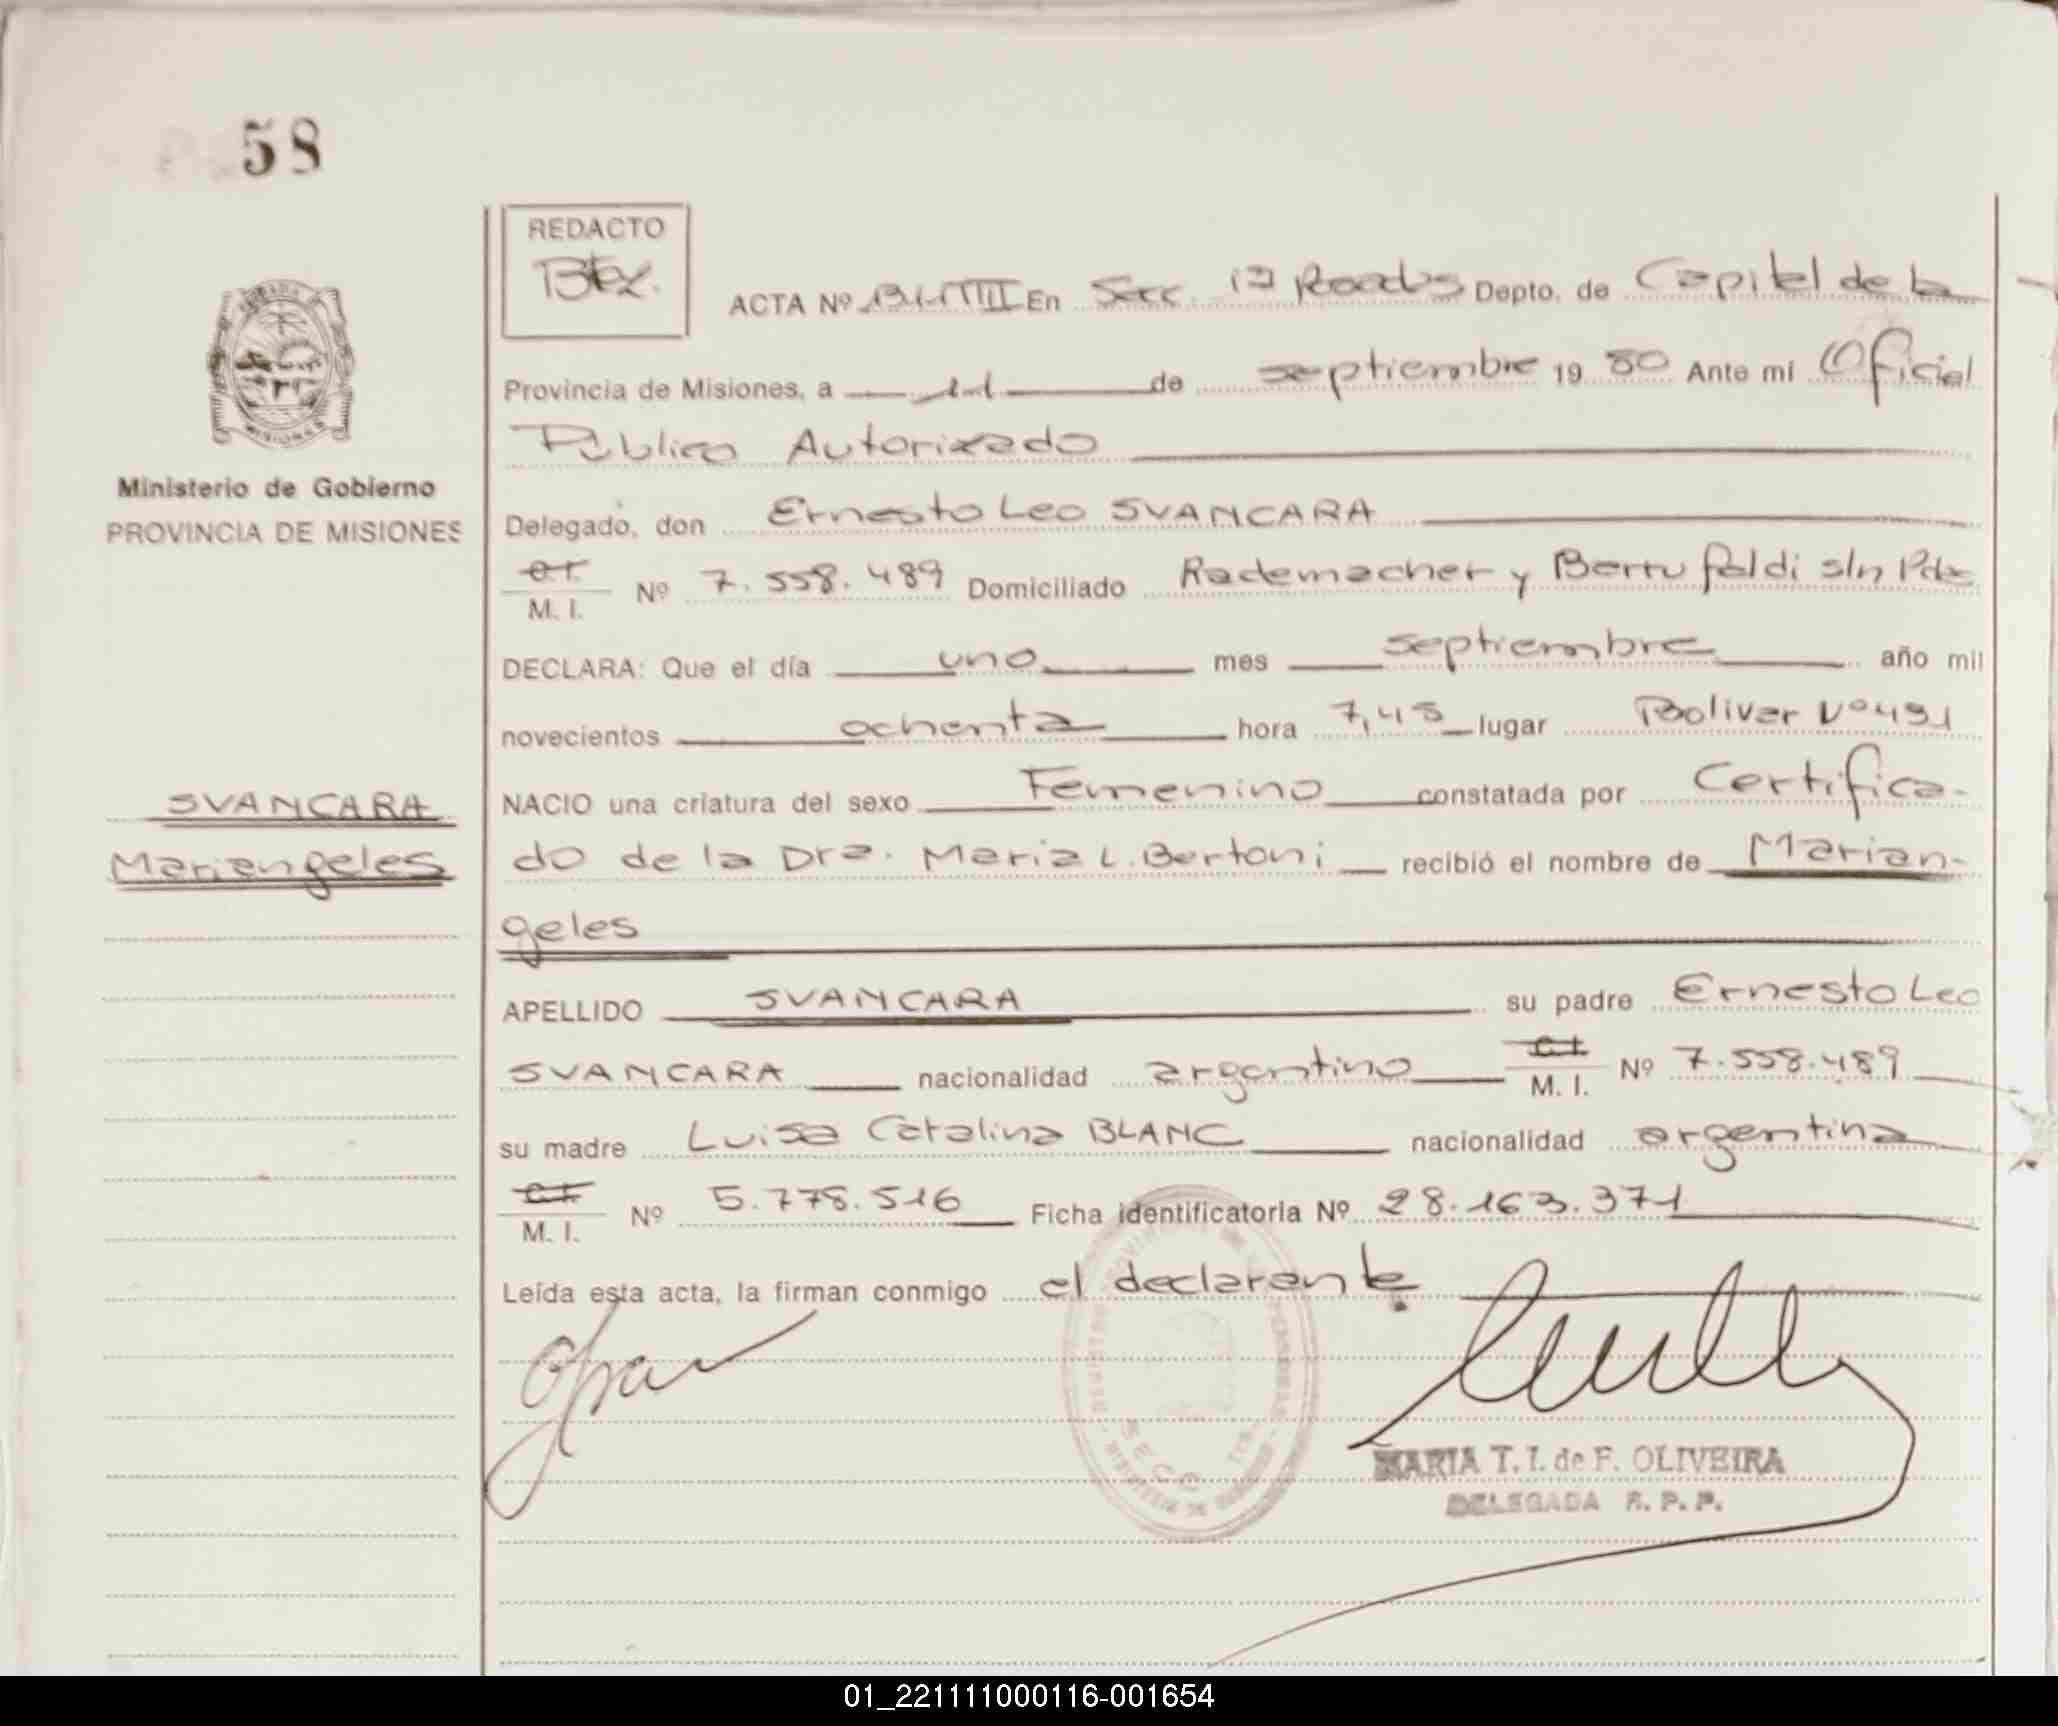 58
REDACTO
ACTA Nº En Secc. 1ª Posadas Depto. de Capital de la
Provincia de Misiones, a 11 de septiembre 19 80 Ante mí Oficial
Público Autorizado
Ministerio de Gobierno
PROVINCIA DE MISIONES
Delegado, don Ernesto Leo SVANCARA
C.I.
M. I. Nº 7.558.489 Domiciliado Rademacher y s/n Pdas
DECLARA: Que el día uno mes septiembre año mil
novecientos ochenta hora 7,45 lugar Bolivar Nº 491
SVANCARA
Mariangeles
NACIO una criatura del sexo Femenino constatada por Certifica-
do de la Dra. Maria L. Bertoni recibió el nombre de Marian-
geles
APELLIDO SVANCARA su padre Ernesto Leo
SVANCARA nacionalidad argentino C.I. M. I. Nº 7.558.489
su madre Luisa Catalina BLANC nacionalidad argentina
C.I.
M. I. Nº 5.778.516 Ficha identificatoria Nº 28.163.371
Leída esta acta, la firman conmigo el declarante.
MARIA T. I. de F. OLIVEIRA
DELEGADA R. P. P.
01_221111000116-001654